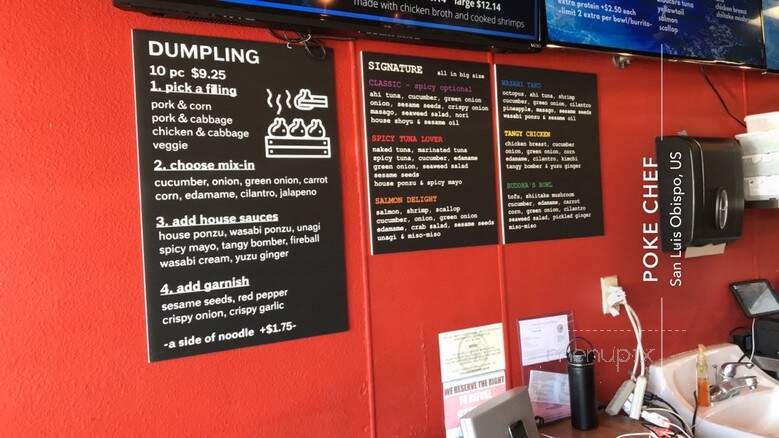 made with chicken broth and cooked shrimps
large $12.14
extra protein +$2.50 each
-limit 2 extra per bowl/burrito-
yellowtail
salmon
scallop
chicken breast
shiitake mushroom
DUMPLING
10 pc $9.25
1. pick a filling
pork & corn
pork & cabbage
chicken & cabbage
veggie
2. choose mix-in
cucumber, onion, green onion, carrot
corn, edamame, cilantro, jalapeno
3. add house sauces
house ponzu, wasabi ponzu, unagi
spicy mayo, tangy bomber, fireball
wasabi cream, yuzu ginger
4. add garnish
sesame seeds, red pepper
crispy onion, crispy garlic
-a side of noodle +$1.75-
SIGNATURE
all in big size
CLASSIC - spicy optional
ahi tuna, cucumber, green onion
onion, sesame seeds, crispy onion
masago, seaweed salad, nori
house shoyu & sesame oil
SPICY TUNA LOVER
naked tuna, marinated tuna
spicy tuna, cucumber, edamame
green onion, seaweed salad
sesame seeds
house ponzu & spicy mayo
SALMON DELIGHT
salmon, shrimp, scallop
cucumber, onion, green onion
edamame, crab salad, sesame seeds
unagi & miso-miso
WASABI TAKO
octopus, ahi tuna, shrimp
cucumber, green onion, cilantro
pineapple, masago, sesame seeds
wasabi ponzu & sesame oil
TANGY CHICKEN
chicken breast, cucumber
onion, green onion, corn
edamame, cilantro, kimchi
tangy bomber & yuzu ginger
BUDDHA'S BOWL
tofu, shiitake mushroom
cucumber, edamame, carrot
corn, green onion, cilantro
seaweed salad, pickled ginger
miso-miso
WE RESERVE THE RIGHT
POKE CHEF
San Luis Obispo, US
menupix